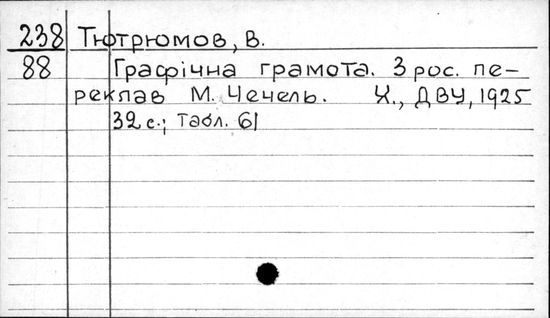 238 Тютрюмов, В.
88 Графічна грамота. З рос. пе-
реклав М. Чечель. Х., ДВУ, 1925
32 с.; табл. 61